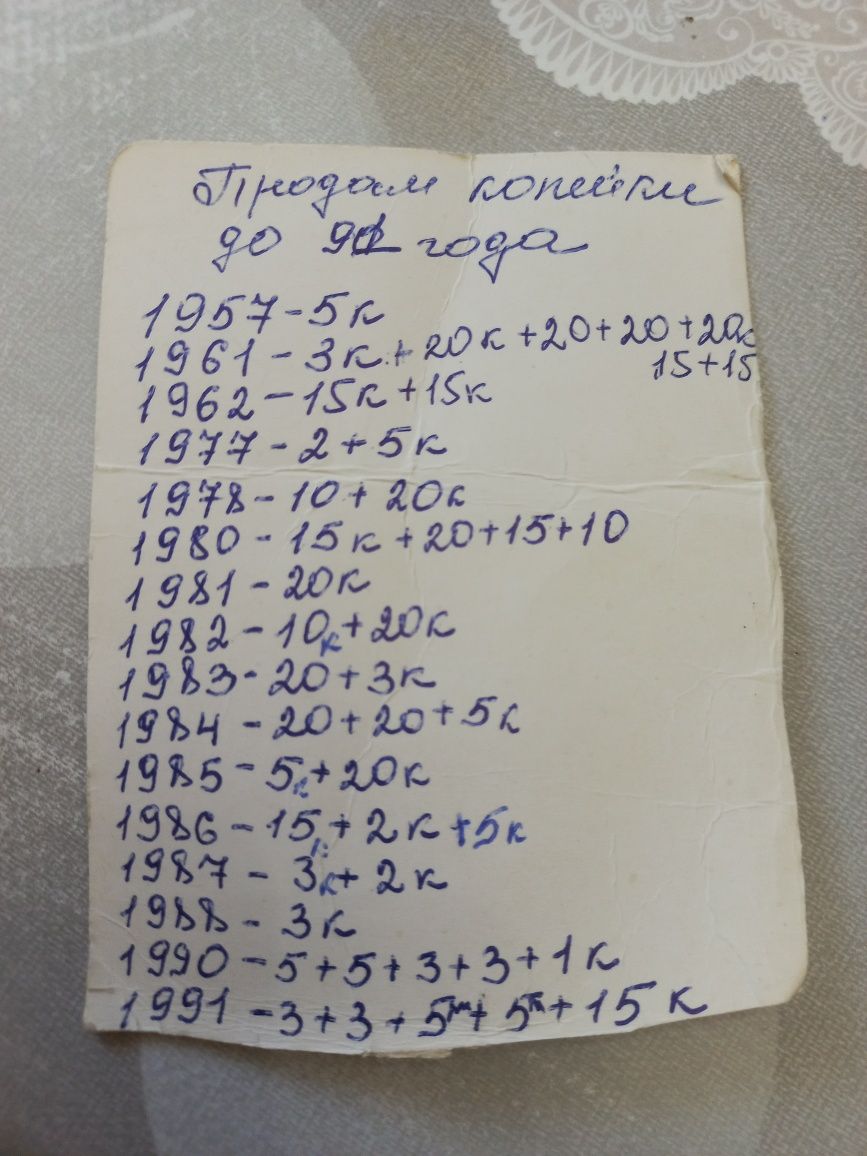 Продам копейки
до 91 года
1957-5к
1961-3к+20к+20+20+20к
15+15
1962-15к+15к
1977-2+5к
1978-10+20к
1980-15к+20+15+10
1981-20к
1982-10к+20к
1983-20+3к
1984-20+20+5к
1985-5к+20к
1986-15к+2к+5к
1987-3к+2к
1988-3к
1990-5+5+3+3+1к
1991-3+3+5м+5м+15к